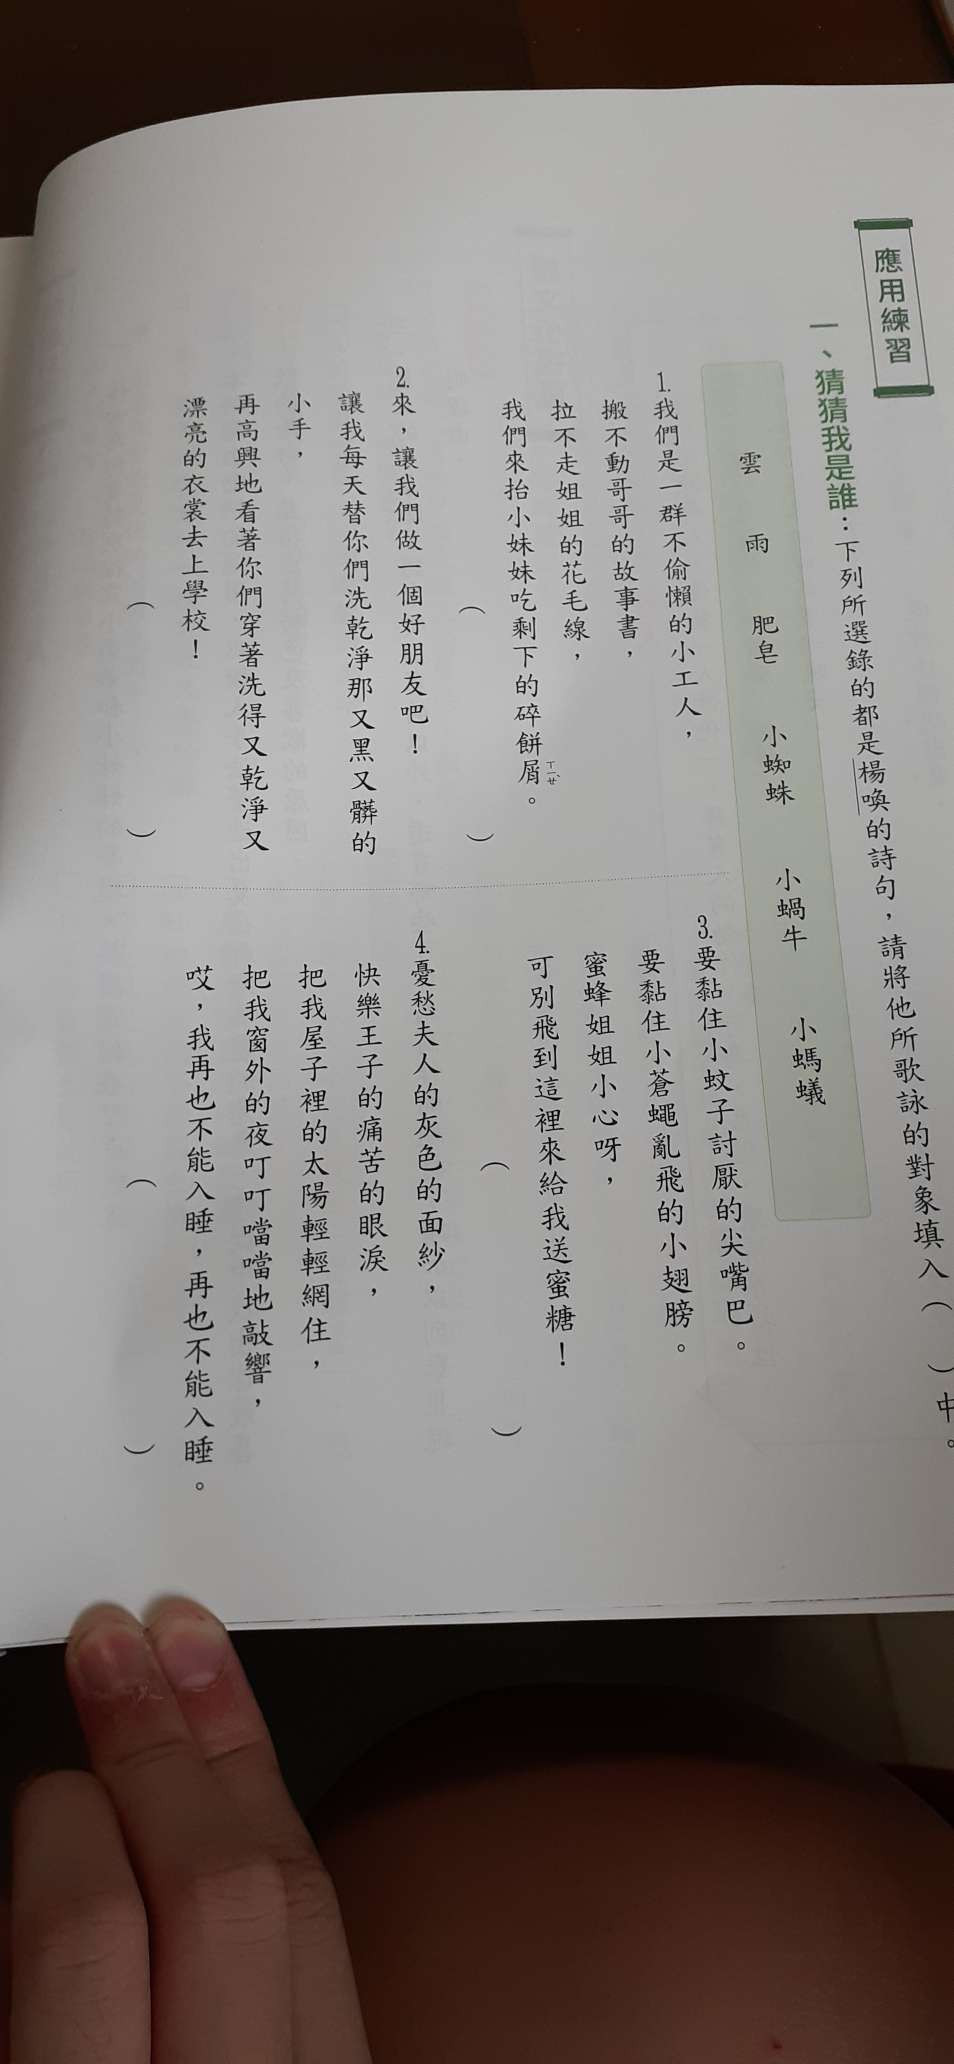 應用練習
一、猜猜我是誰：下列所選錄的都是楊喚的詩句，請將他所歌詠的對象填入（　）中。
雲　雨　肥皂　小蜘蛛　小蝸牛　小螞蟻
1.我們是一群不偷懶的小工人，
搬不動哥哥的故事書，
拉不走姐姐的花毛線，
我們來抬小妹妹吃剩下的碎餅屑。
ㄒㄧㄝˋ
（　）
2.來，讓我們做一個好朋友吧！
讓我每天替你們洗乾淨那又黑又髒的
小手，
再高興地看著你們穿著洗得又乾淨又
漂亮的衣裳去上學校！
（　）
3.要黏住小蚊子討厭的尖嘴巴。
要黏住小蒼蠅亂飛的小翅膀。
蜜蜂姐姐小心呀，
可別飛到這裡來給我送蜜糖！
（　）
4.憂愁夫人的灰色的面紗，
快樂王子的痛苦的眼淚，
把我屋子裡的太陽輕輕網住，
把我窗外的夜叮叮噹噹地敲響，
哎，我再也不能入睡，再也不能入睡。
（　）